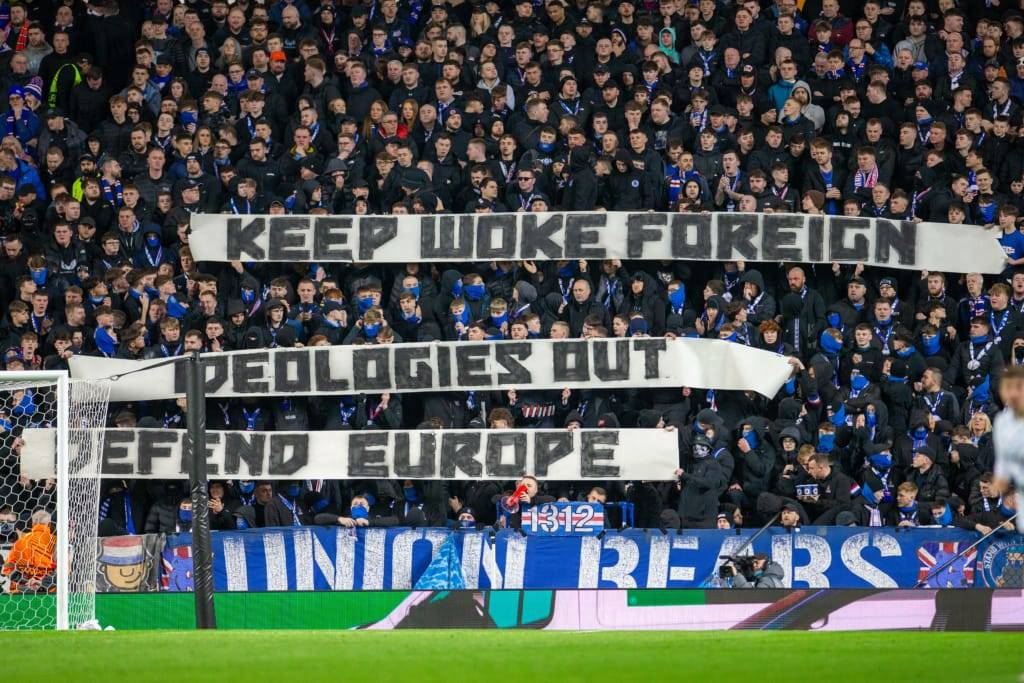 KEEP WOKE FOREIGN
IDEOLOGIES OUT
DEFEND EUROPE
1312
UNION BEARS